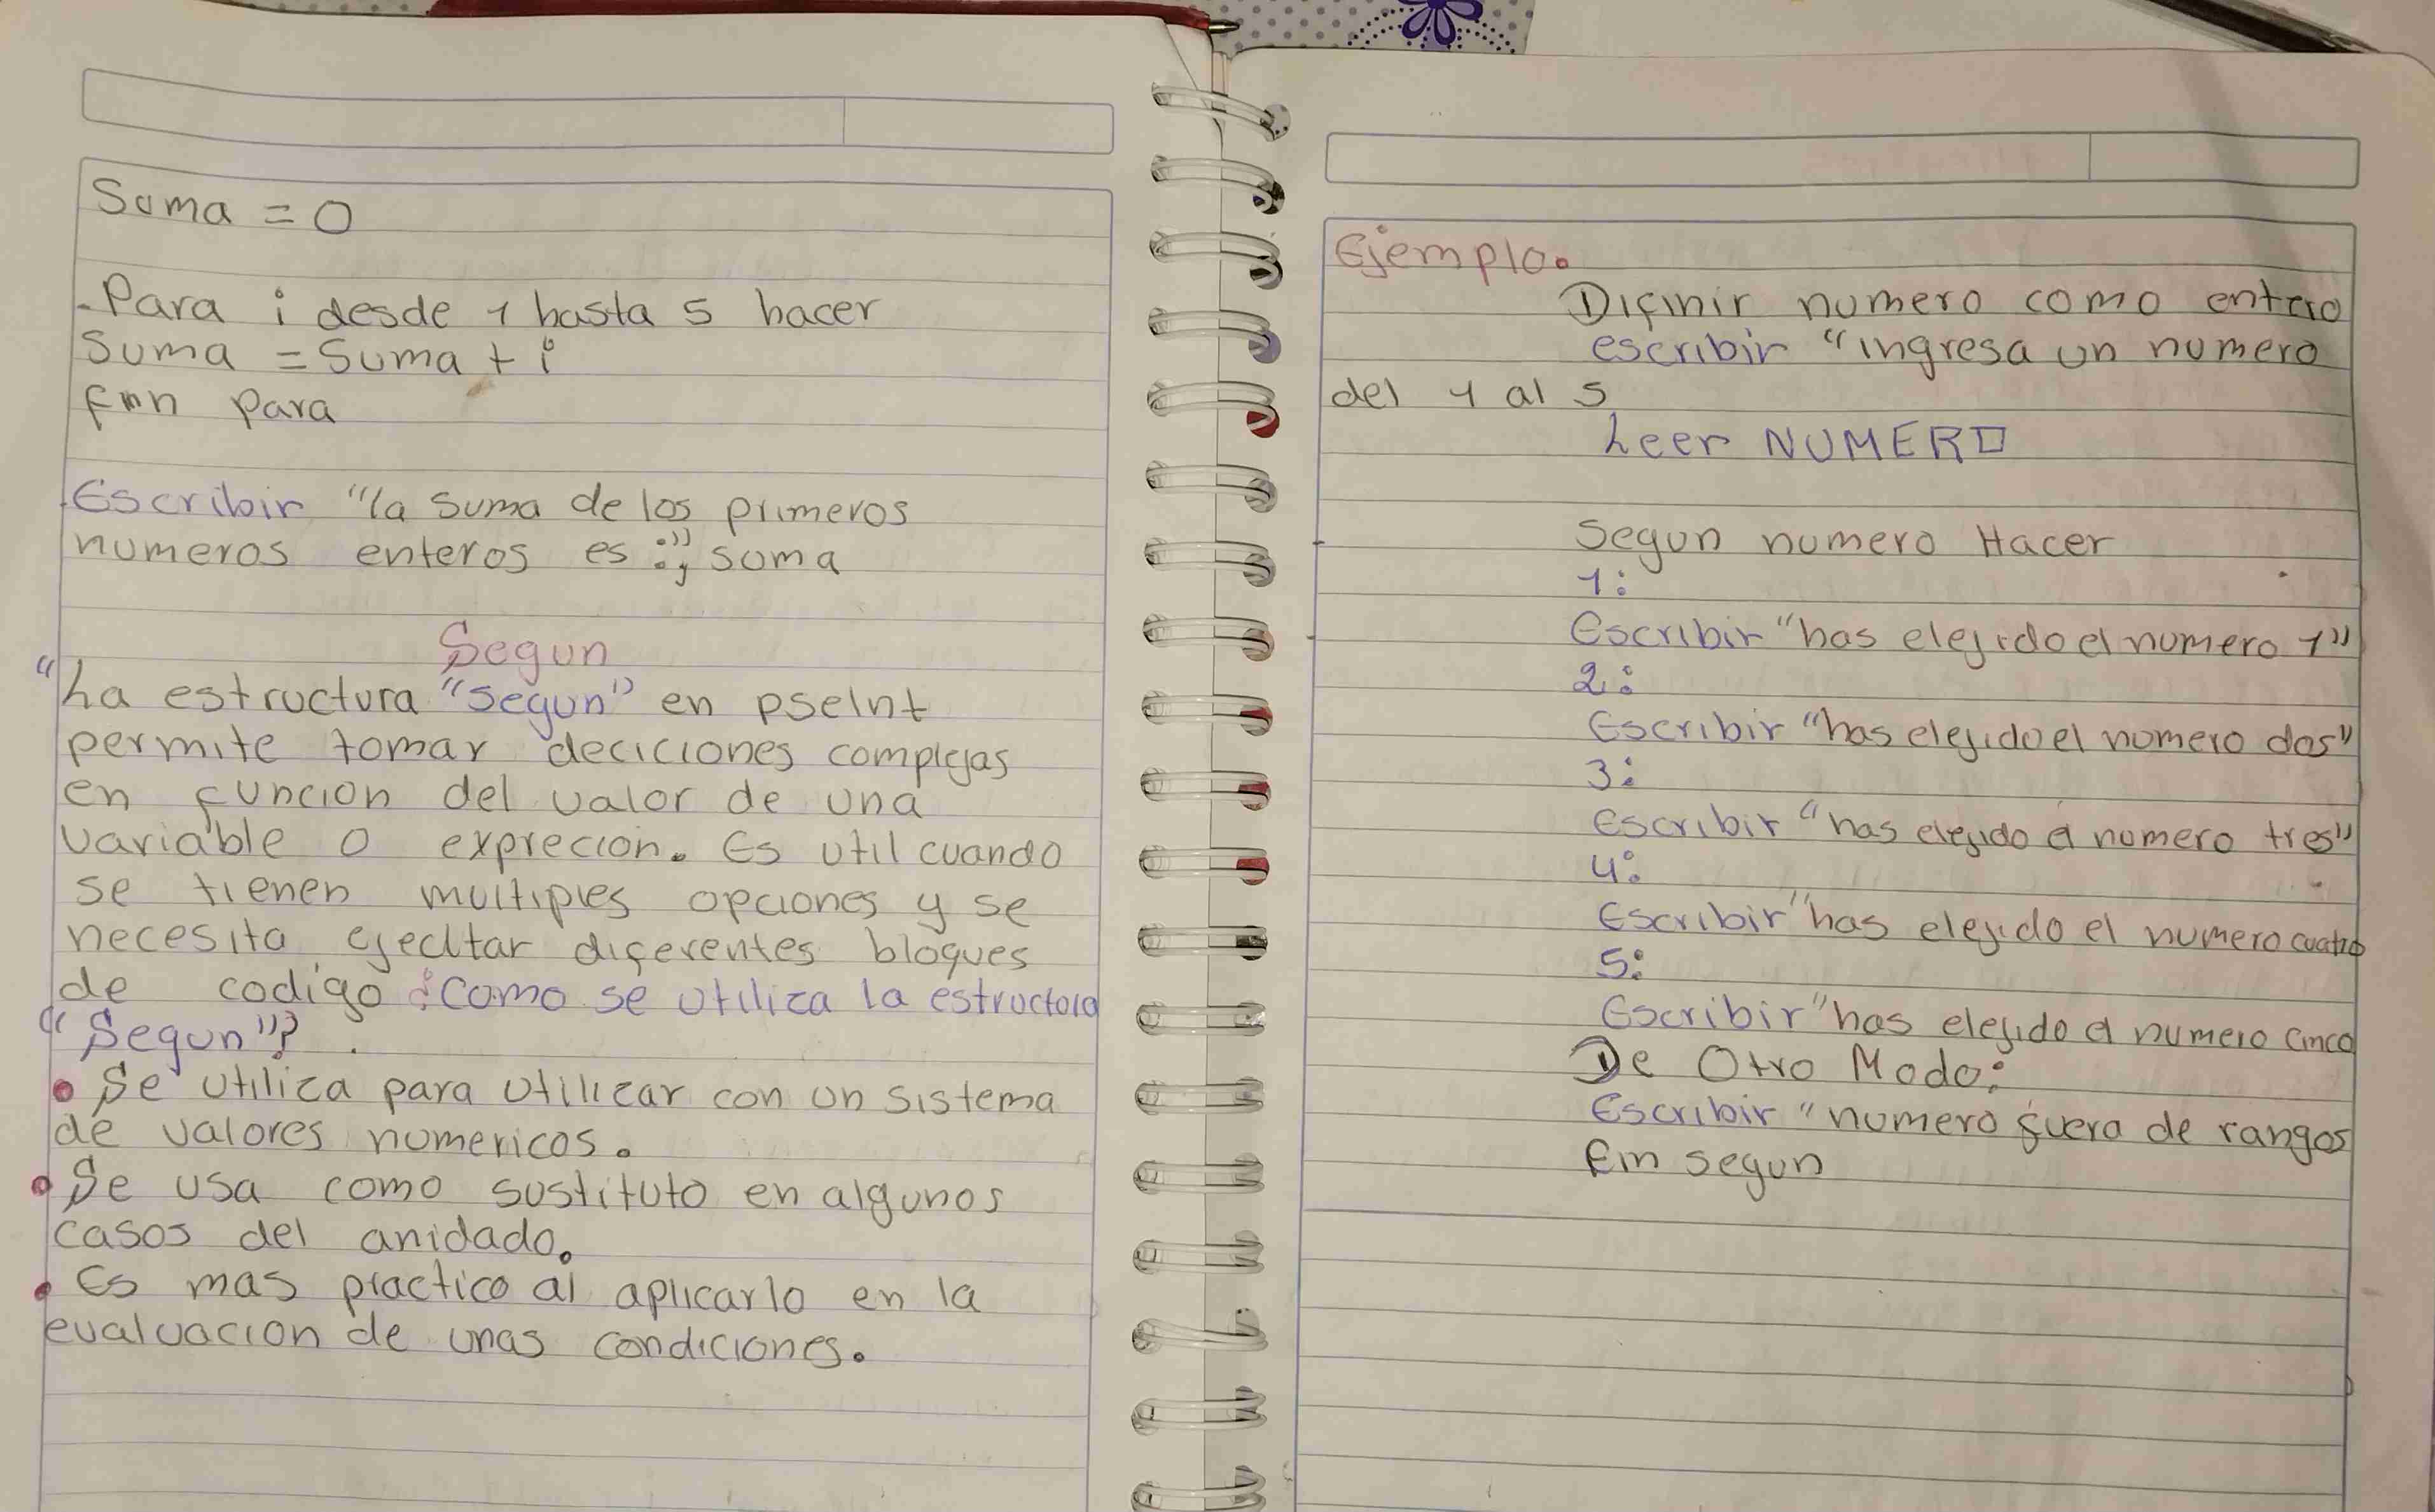 Suma = 0
.Para i desde 1 hasta 5 hacer
Suma = Suma + i
fin para
.Escribir "la suma de los primeros
numeros enteros es :", suma
Segun
"La estructura "segun" en pseInt
permite tomar deciciones complejas
en funcion del valor de una
variable o exprecion. Es util cuando
se tienen multiples opciones y se
necesita ejecutar diferentes bloques
de codigo ¿Como se utiliza la estructura
"Segun"?
• Se utiliza para utilizar con un sistema
de valores numericos.
• Se usa como sustituto en algunos
casos del anidado.
• Es mas practico al aplicarlo en la
evaluacion de unas condiciones.
Ejemplo.
Difinir numero como entero
escribir "ingresa un numero
del 1 al 5
Leer NUMERO
Segun numero Hacer
1:
Escribir "has elejido el numero 1"
2:
Escribir "has elejido el numero dos"
3:
escribir "has elejido el numero tres"
4:
Escribir "has elejido el numero cuatro
5:
Escribir "has elejido el numero cinco
De Otro Modo:
Escribir "numero fuera de rangos
Fin segun